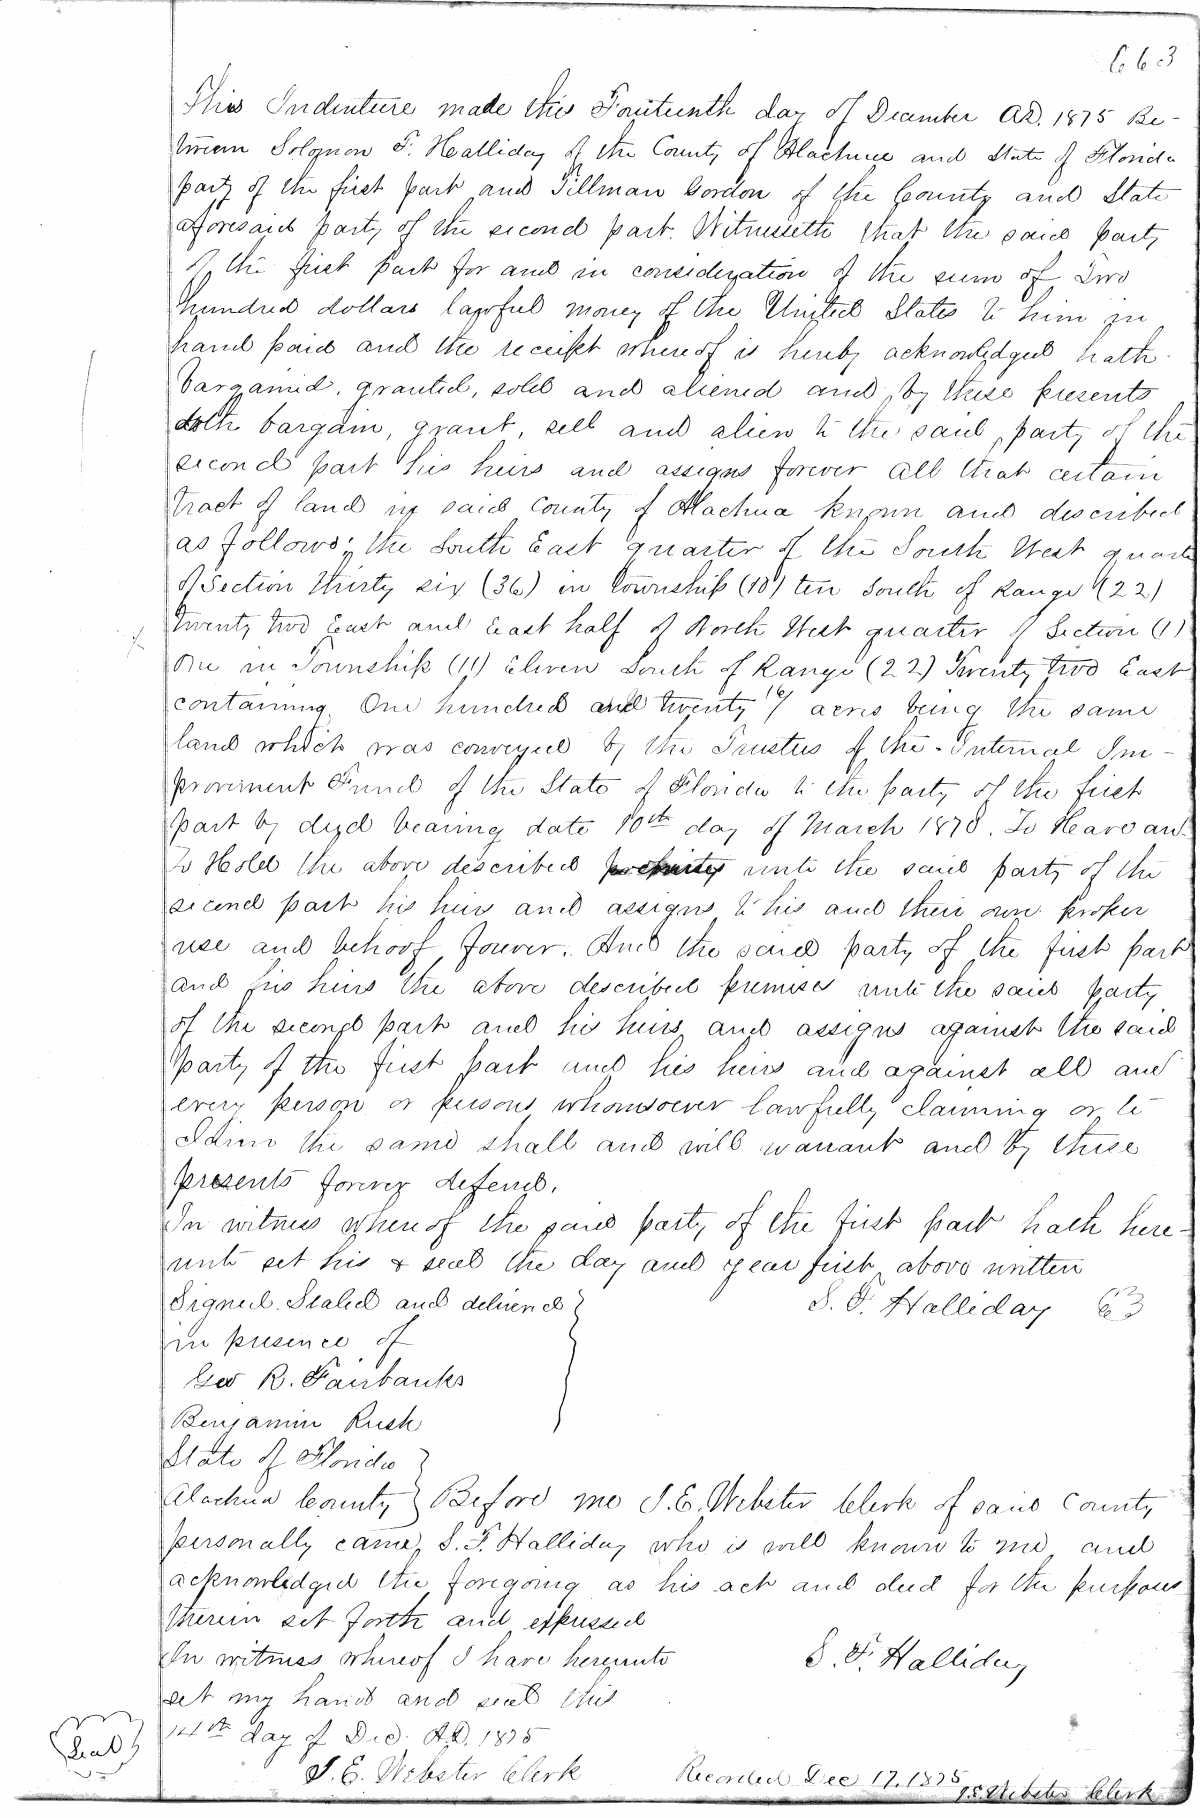 663
This Indenture made this Fourteenth day of December A.D. 1875 Be-
tween Solomon F. Halliday of the County of Alachua and State of Florida
party of the first part and Tillman Gordon of the County and State
aforesaid party of the second part. Witnesseth that the said party
of the first part for and in consideration of the sum of Two
hundred dollars lawful money of the United States to him in
hand paid and the receipt whereof is hereby acknowledged hath
bargained, granted, sold and aliened and by these presents
doth bargain, grant, sell and alien to the said party of the
second part his heirs and assigns forever all that certain
tract of land in said County of Alachua known and described
as follows: the South East quarter of the South West quarte
of Section thirty six (36) in Township (10) ten South of Range (22)
twenty two East and East half of North West quarter of Section (1)
One in Township (11) Eleven South of Range (22) Twenty two East
containing One hundred and twenty acres being the same
land which was conveyed by the Trustees of the Internal Im-
provement Fund of the State of Florida to the party of the first
part by deed bearing date 10th day of March 1870. To Have and
To Hold the above described unto the said party of the
second part his heirs and assigns to his and their own proper
use and behoof forever. And the said party of the first part
and his heirs the above described premises unto the said party
of the second part and his heirs and assigns against the said
party of the first part and his heirs and against all and
every person or persons whomsoever lawfully claiming or to
claim the same shall and will warrant and by these
presents forever defend.
In witness whereof the said party of the first part hath here-
unto set his & seal the day and year first above written
Signed Sealed and delivered S. F. Halliday
in presence of
Geo R. Fairbanks
Benjamin Rush
State of Florida
Alachua County } Before me J. E. Webster Clerk of said County
personally came S. F. Halliday who is well known to me and
acknowledged the foregoing as his act and deed for the purposes
therein set forth and expressed
In witness whereof I have hereunto S. F. Halliday
set my hand and seal this
14th day of Dec. A.D. 1875
Seal
J. E. Webster Clerk Recorded Dec 17, 1875
J.E. Webster Clerk